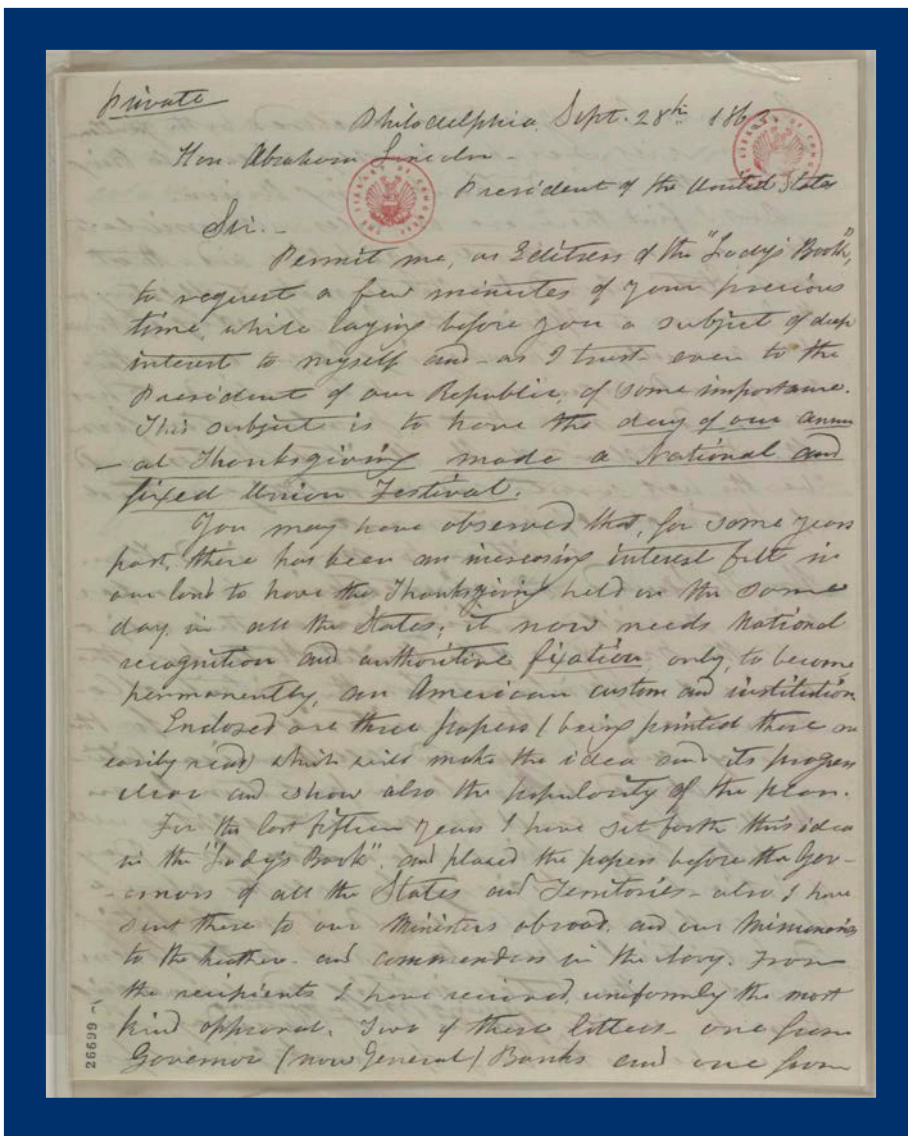 Private
Philadelphia, Sept. 28th 1863.
Hon. Abraham Lincoln -
President of the United States
Sir. -
Permit me, as Editress of the "Lady's Book",
to request a few minutes of your precious
time, while laying before you a subject of deep
interest to myself and - as I trust - even to the
President of our Republic, of some importance.
This subject is to have the day of our annu
- al Thanksgiving made a National and
fixed Union Festival.
You may have observed that, for some years
past, there has been an increasing interest felt in
our land to have the Thanksgiving held on the same
day, in all the States; it now needs National
recognition and authoritive fixation, only, to become
permanently, an American custom and institution.
Enclosed are three papers (being printed these are
easily read) which will make the idea and its progress
clear and show also the popularity of the plan.
For the last fifteen years I have set forth this idea
in the "Lady's Book", and placed the papers before the Gov-
-ernors of all the States and Territories - also I have
sent these to our Ministers abroad, and our Missionaries
to the heathen - and commanders in the Navy. From
the recipients I have received, uniformly the most
kind approval. Two of these letters - one from
Governor (now General) Banks and one from
THE LIBRARY OF CONGRESS
26699